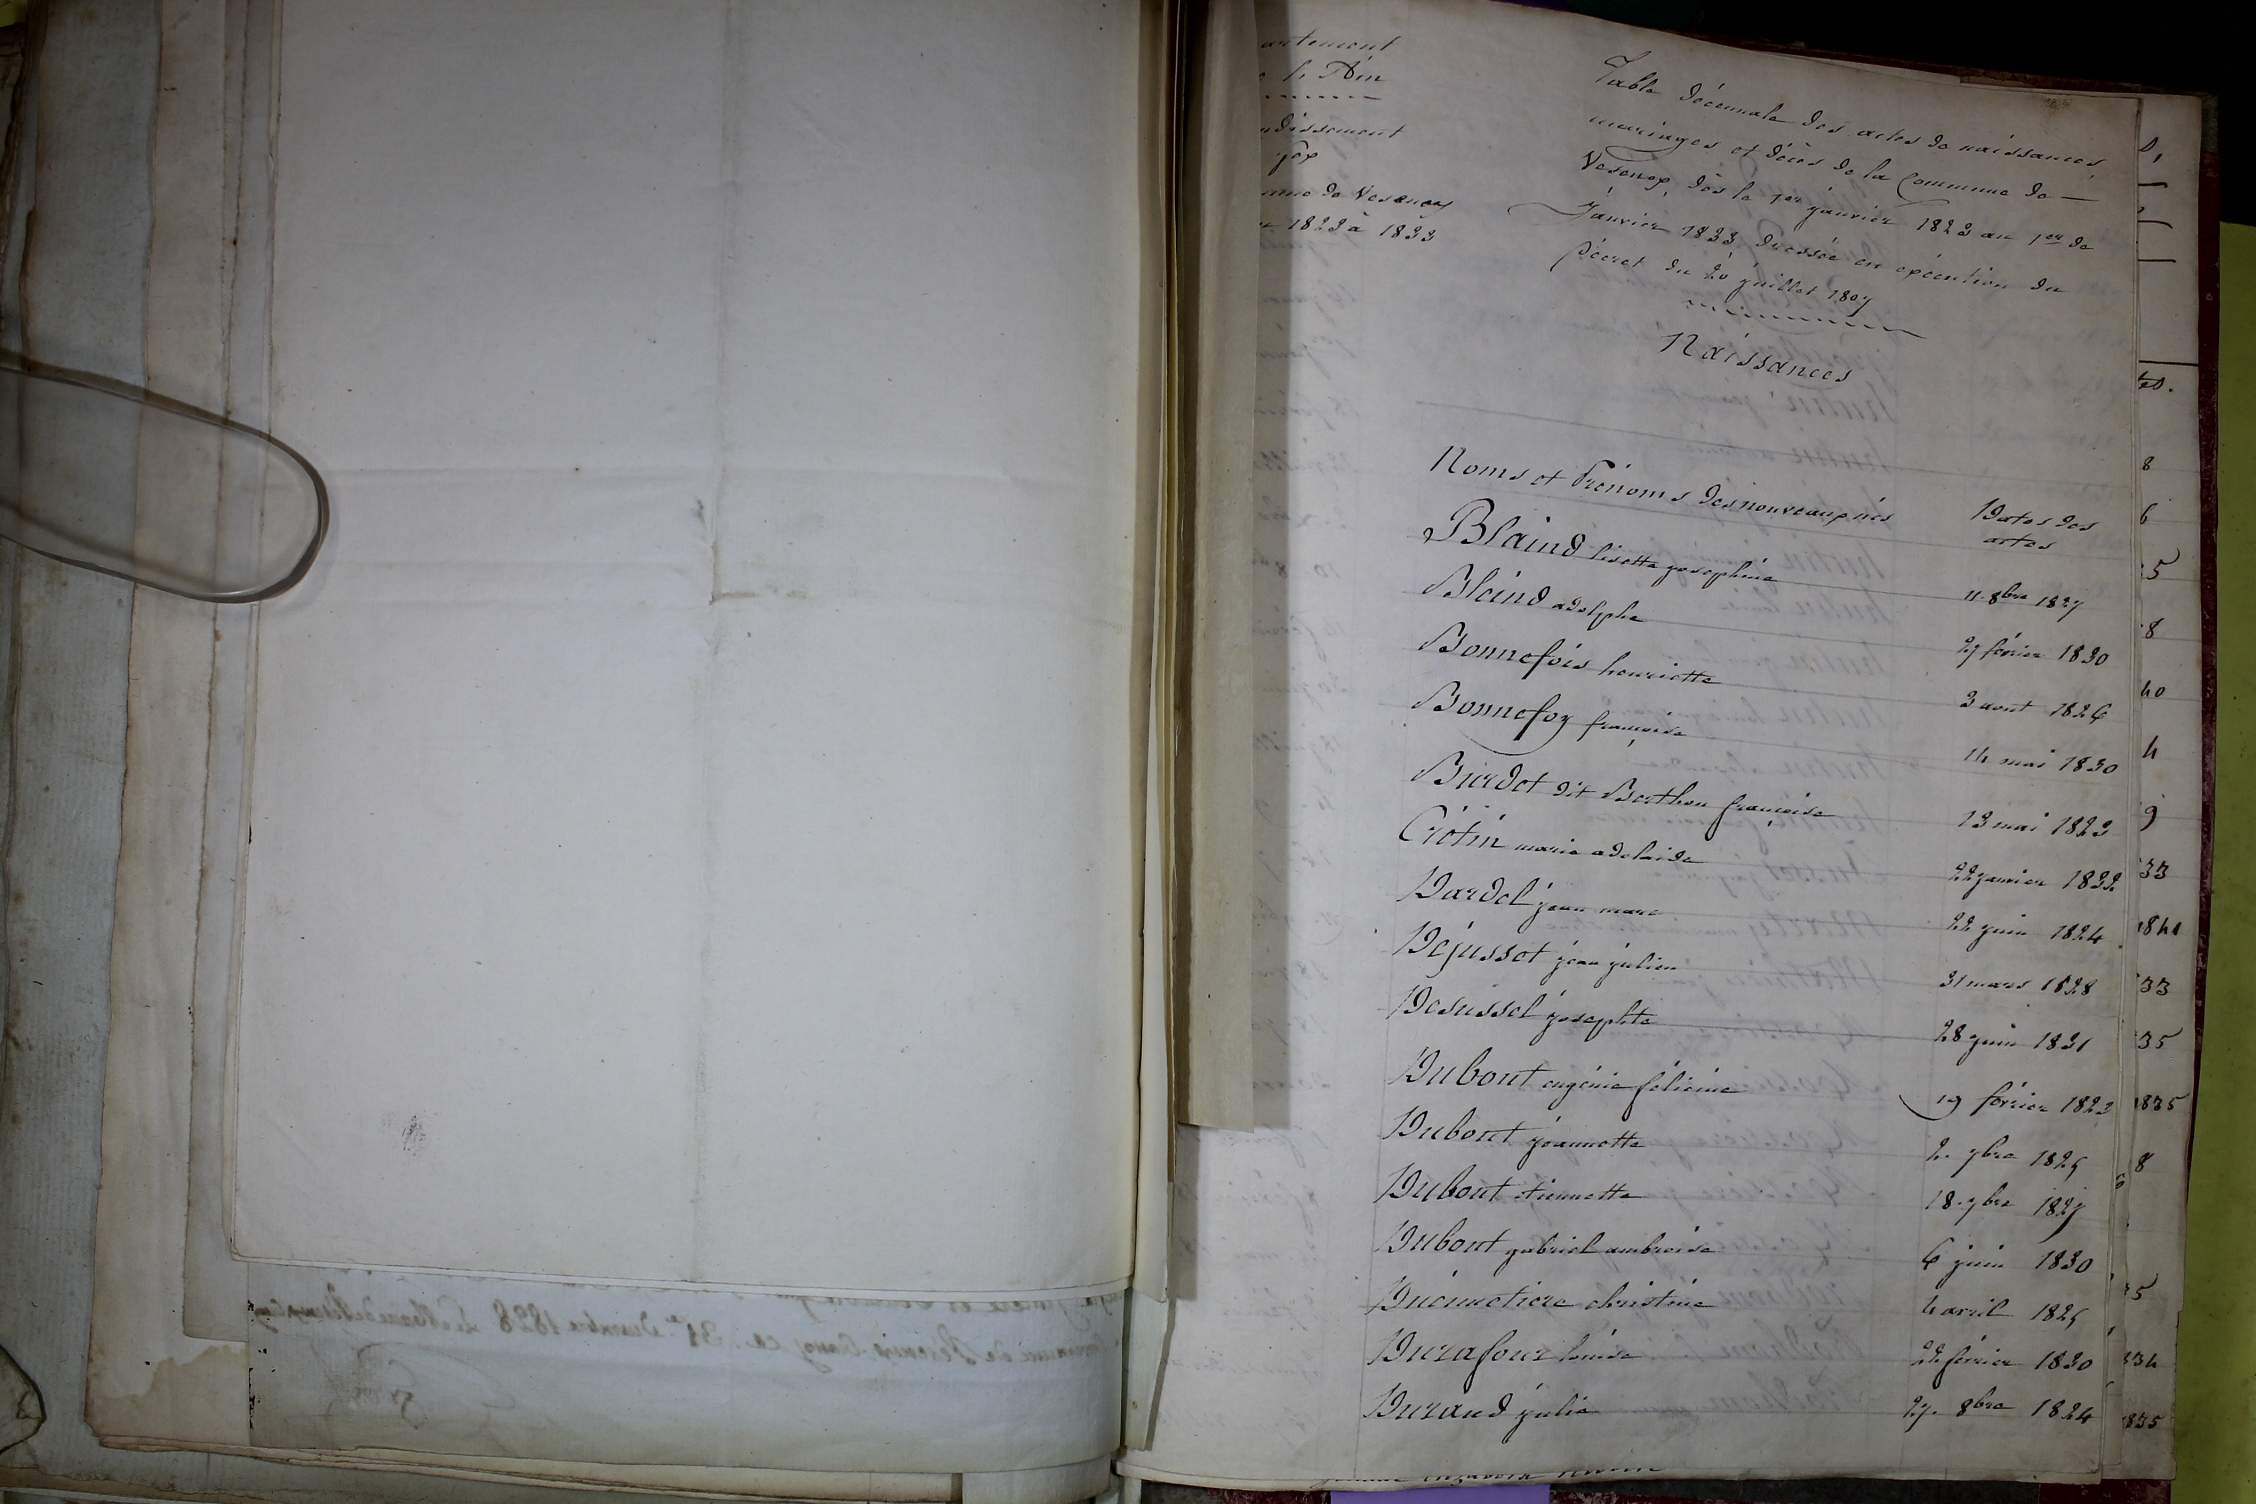 artement
de l'Ain
ndissement
gex
mune de Vesenex
1823 à 1833
Table décennale des actes de naissances
mariages et décès de la Commune de
Vesenex, dès le 1er janvier 1823 au 1er de
Janvier 1833 dressée en exécution du
décret du 20 juillet 1807
Naissances
Noms et Prénoms des nouveaux nés Dates des
actes
Blaind lisette josephine 11. 8bre 1827
Blaind adolphe 27 février 1830
Bonnefois henriette 3 aout 1826
Bonnefoy françoise 14 mai 1830
Burdot dit Berthon françoise 13 mai 1823
Crotin marie adelaide 22 janvier 1832
Dardel jean marc 22 juin 1824
Dejussel jean julien 31 mars 1828
Desussel josephte 28 juin 1831
Dubout eugénie félicine 19 février 1823
Dubout jeannette 2. 7bre 1825
Dubout etiennette 18. 7bre 1827
Dubout gabriel ambroise 6 juin 1830
Ducimetiere christine 4 avril 1825
Durafour louise 22 février 1830
Durand julie 27. 8bre 1824